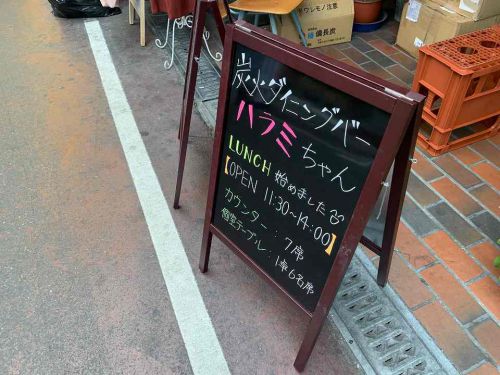 コワレモノ注意
備長炭
炭火ダイニングバー
ハラミちゃん
LUNCH 始めました
【OPEN 11:30~14:00】
カウンター：7席
個室テーブル：1席6名席